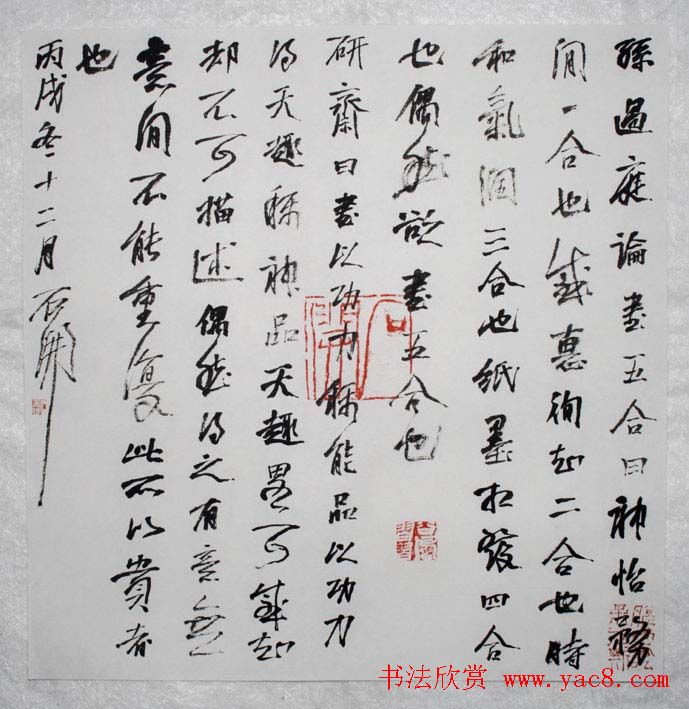 孫過庭論書五合曰神怡務
閒一合也感惠徇知二合也時
和氣潤三合也紙墨相發四合
也偶然欲書五合也
研齋曰書以功力稱能品以功力
得天趣稱神品天趣畧可感知
却不可描述偶然得之有意無
意間不能重復此所以貴者
也
丙戌冬十二月 石開
石開
书法欣赏 www.yac8.com